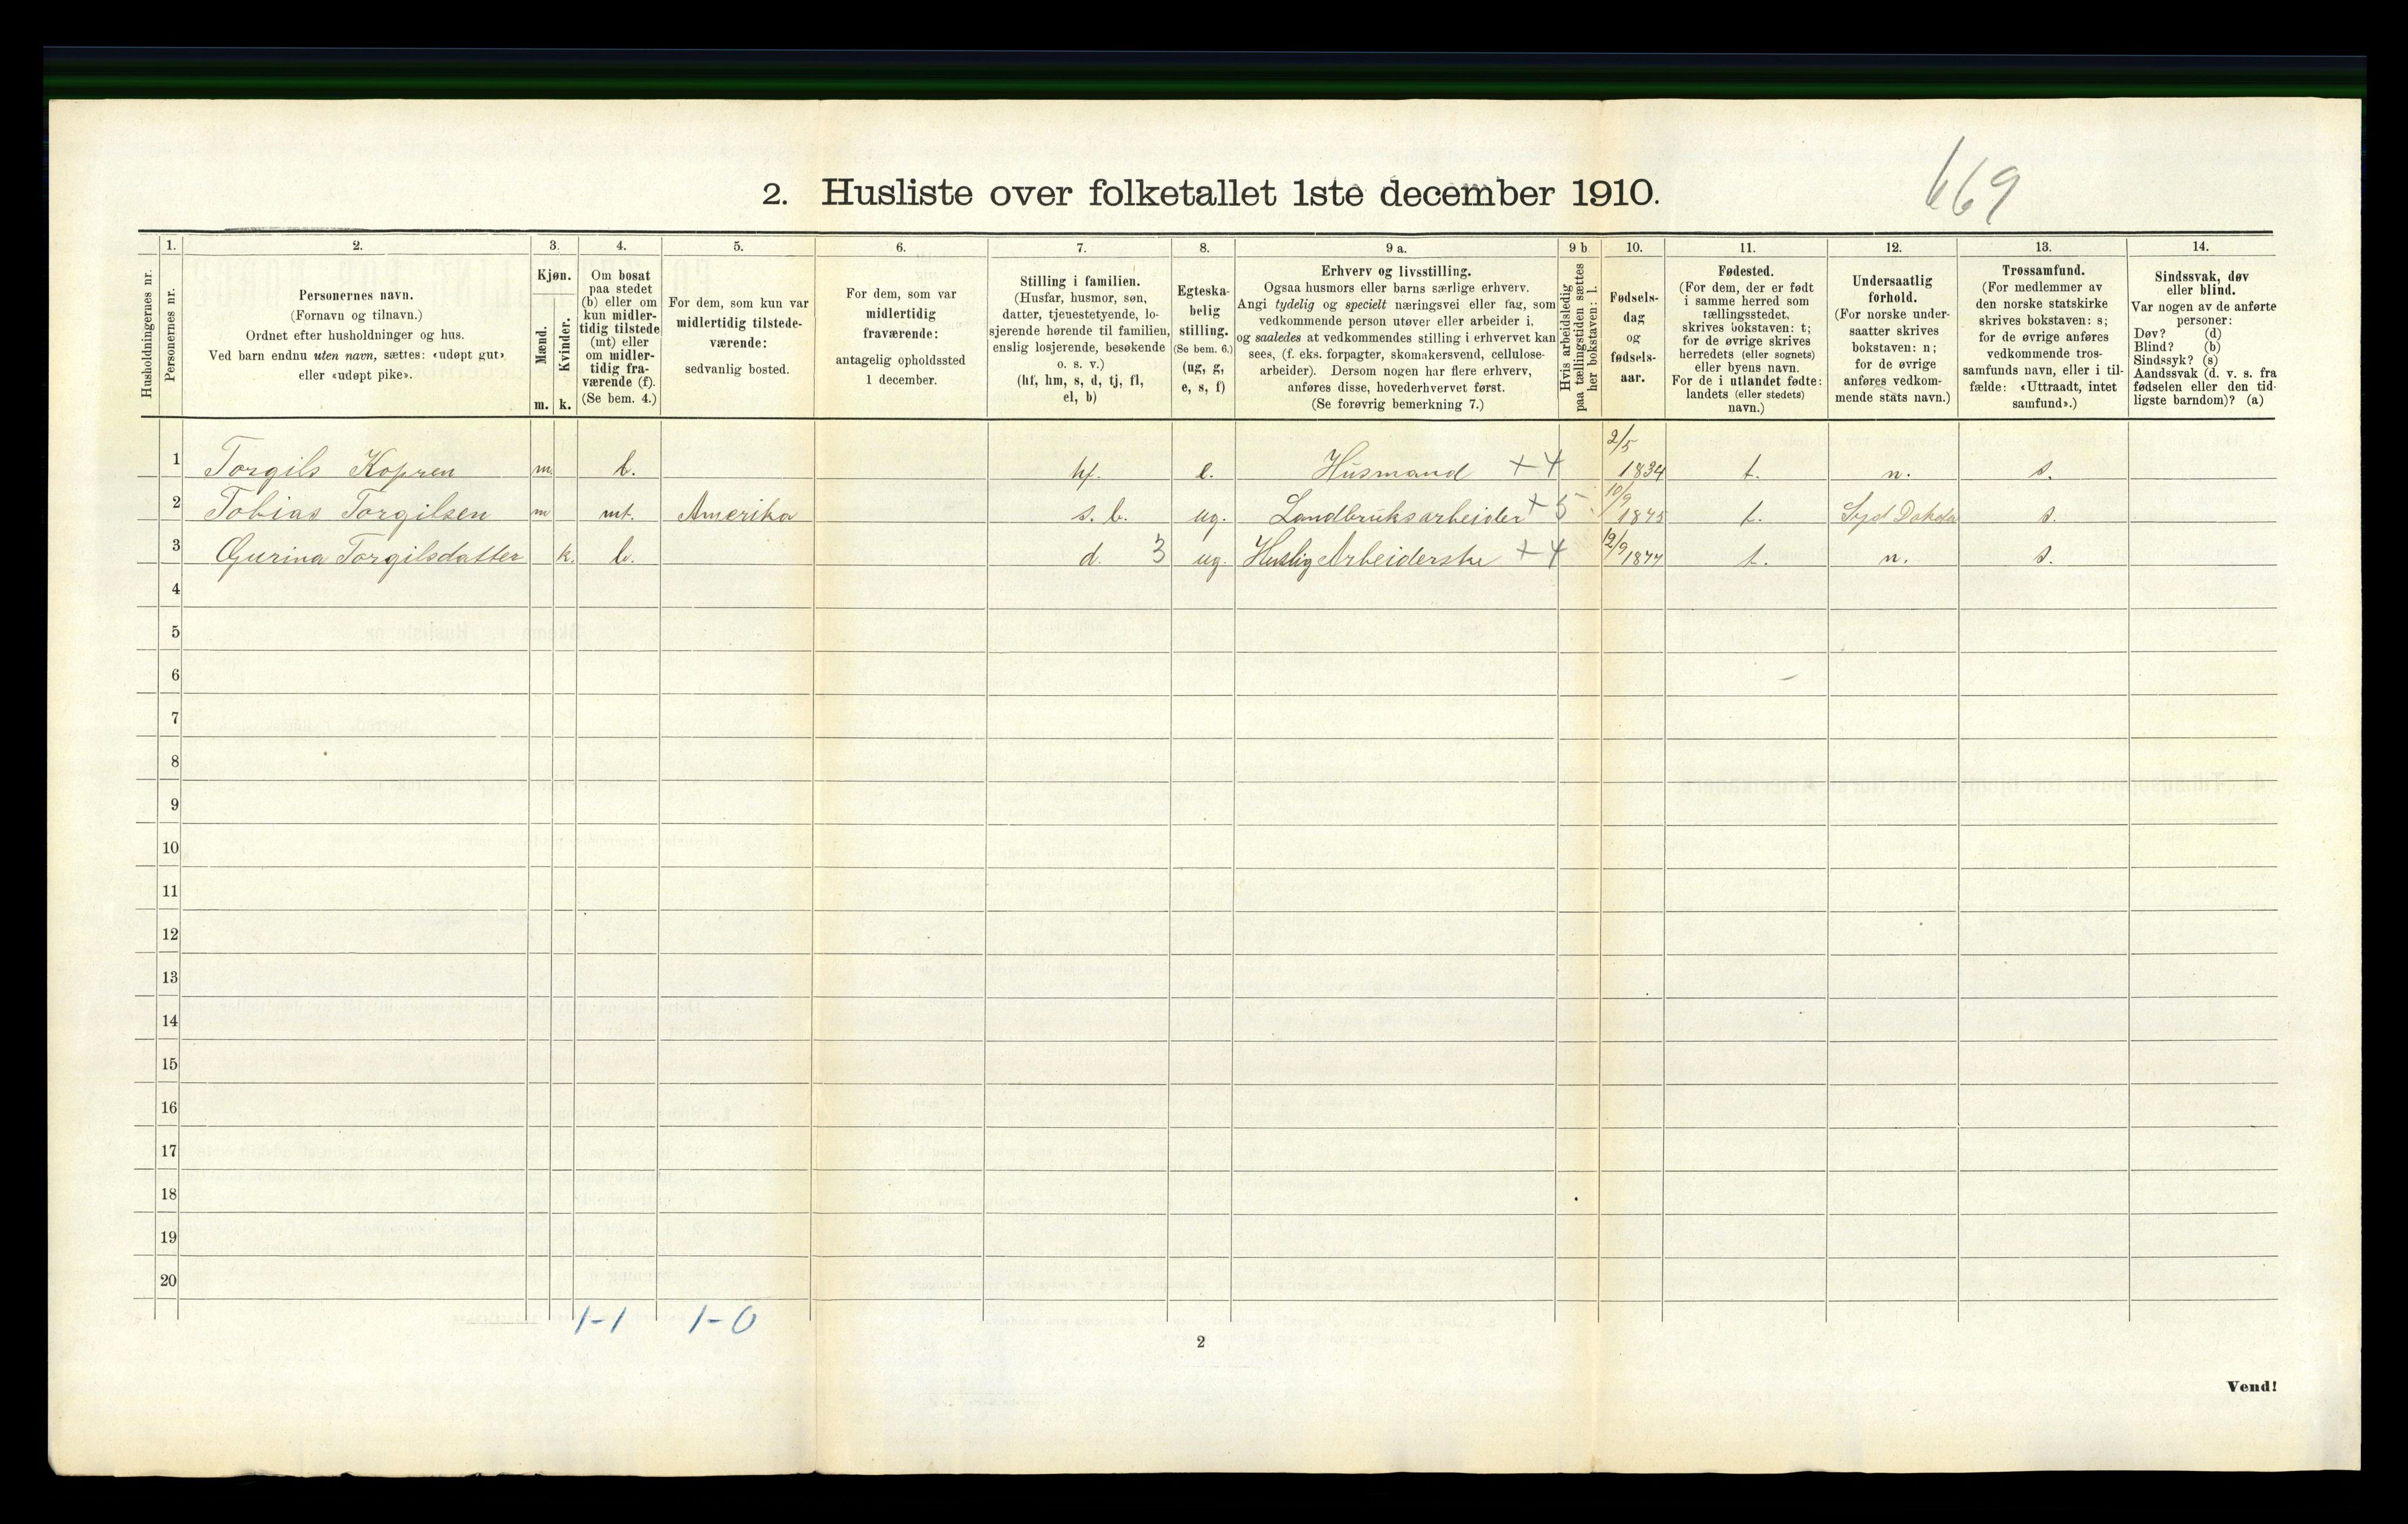 669
2. Husliste over folketallet 1ste december 1910.
Husholdningernes nr.
1.
Personernes nr.
2.
Personernes navn.
(Fornavn og tilnavn.)
Ordnet efter husholdninger og hus.
Ved barn endnu uten navn, sættes: «udøpt gut»
eller «udøpt pike».
3.
Kjøn.
Mænd.
Kvinder.
m. k.
4.
Om bosat
paa stedet
(b) eller om
kun midler-
tidig tilstede
(mt) eller
om midler-
tidig fra-
værende (f).
(Se bem. 4.)
5.
For dem, som kun var
midlertidig tilstede-
værende:
sedvanlig bosted.
6.
For dem, som var
midlertidig
fraværende:
antagelig opholdssted
1 december.
7.
Stilling i familien.
(Husfar, husmor, søn,
datter, tjenestetyende, lo-
sjerende hørende til familien,
enslig losjerende, besøkende
o. s. v.)
(hf, hm, s, d, tj, fl,
el, b)
8.
Egteska-
belig
stilling.
(Se bem. 6.)
(ug, g,
e, s, f)
9 a.
Erhverv og livsstilling.
Ogsaa husmors eller barns særlige erhverv.
Angi tydelig og specielt næringsvei eller fag, som
vedkommende person utøver eller arbeider i,
og saaledes at vedkommendes stilling i erhvervet kan
sees, (f. eks. forpagter, skomakersvend, cellulose-
arbeider). Dersom nogen har flere erhverv,
anføres disse, hovederhvervet først.
(Se forøvrig bemerkning 7.)
9 b
Hvis arbeidsledig
paa tællingstiden sættes
her bokstaven: l.
10.
Fødsels-
dag
og
fødsels-
aar.
11.
Fødested.
(For dem, der er født
i samme herred som
tællingsstedet,
skrives bokstaven: t;
for de øvrige skrives
herredets (eller sognets)
eller byens navn.
For de i utlandet fødte:
landets (eller stedets)
navn.)
12.
Undersaatlig
forhold.
(For norske under-
saatter skrives
bokstaven: n;
for de øvrige
anføres vedkom-
mende stats navn.)
13.
Trossamfund.
(For medlemmer av
den norske statskirke
skrives bokstaven: s;
for de øvrige anføres
vedkommende tros-
samfunds navn, eller i til-
fælde: «Uttraadt, intet
samfund».)
14.
Sindssvak, døv
eller blind.
Var nogen av de anførte
personer:
Døv? (d)
Blind? (b)
Sindssyk? (s)
Aandssvak (d. v. s. fra
fødselen eller den tid-
ligste barndom)? (a)
1 Torgils Kopren m. b. hf. e. Husmand +4 2/5 1834 t. n. s.
2 Tobias Torgilsen m mt. Amerika s. b. ug. Landbruksarbeider +5 10/9 1875 t. Syd Dakota s.
3 Gurina Torgilsdatter k. b. d. 3 ug. Huslig Arbeiderske +4 12/9 1877 t. n. s.
4
5
6
7
8
9
10
11
12
13
14
15
16
17
18
19
20
1-1 1-0
2
Vend!